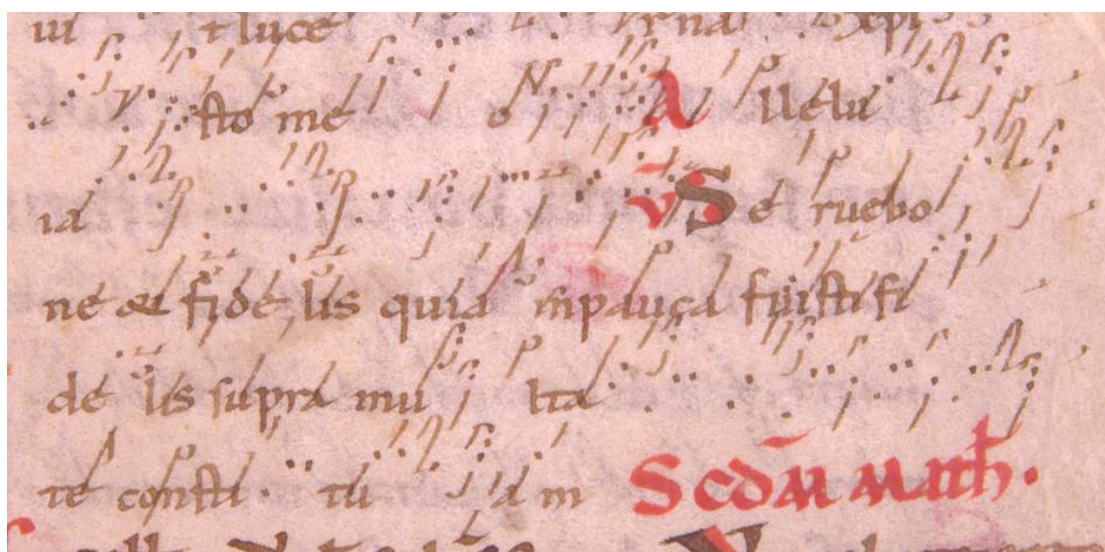 ui t luce
sto me o A llelu
ia V S e rue bo
ne & fide lis quia inpauca fuisti fi
de lis supra mu lta
te consti tu a m Scdm math.